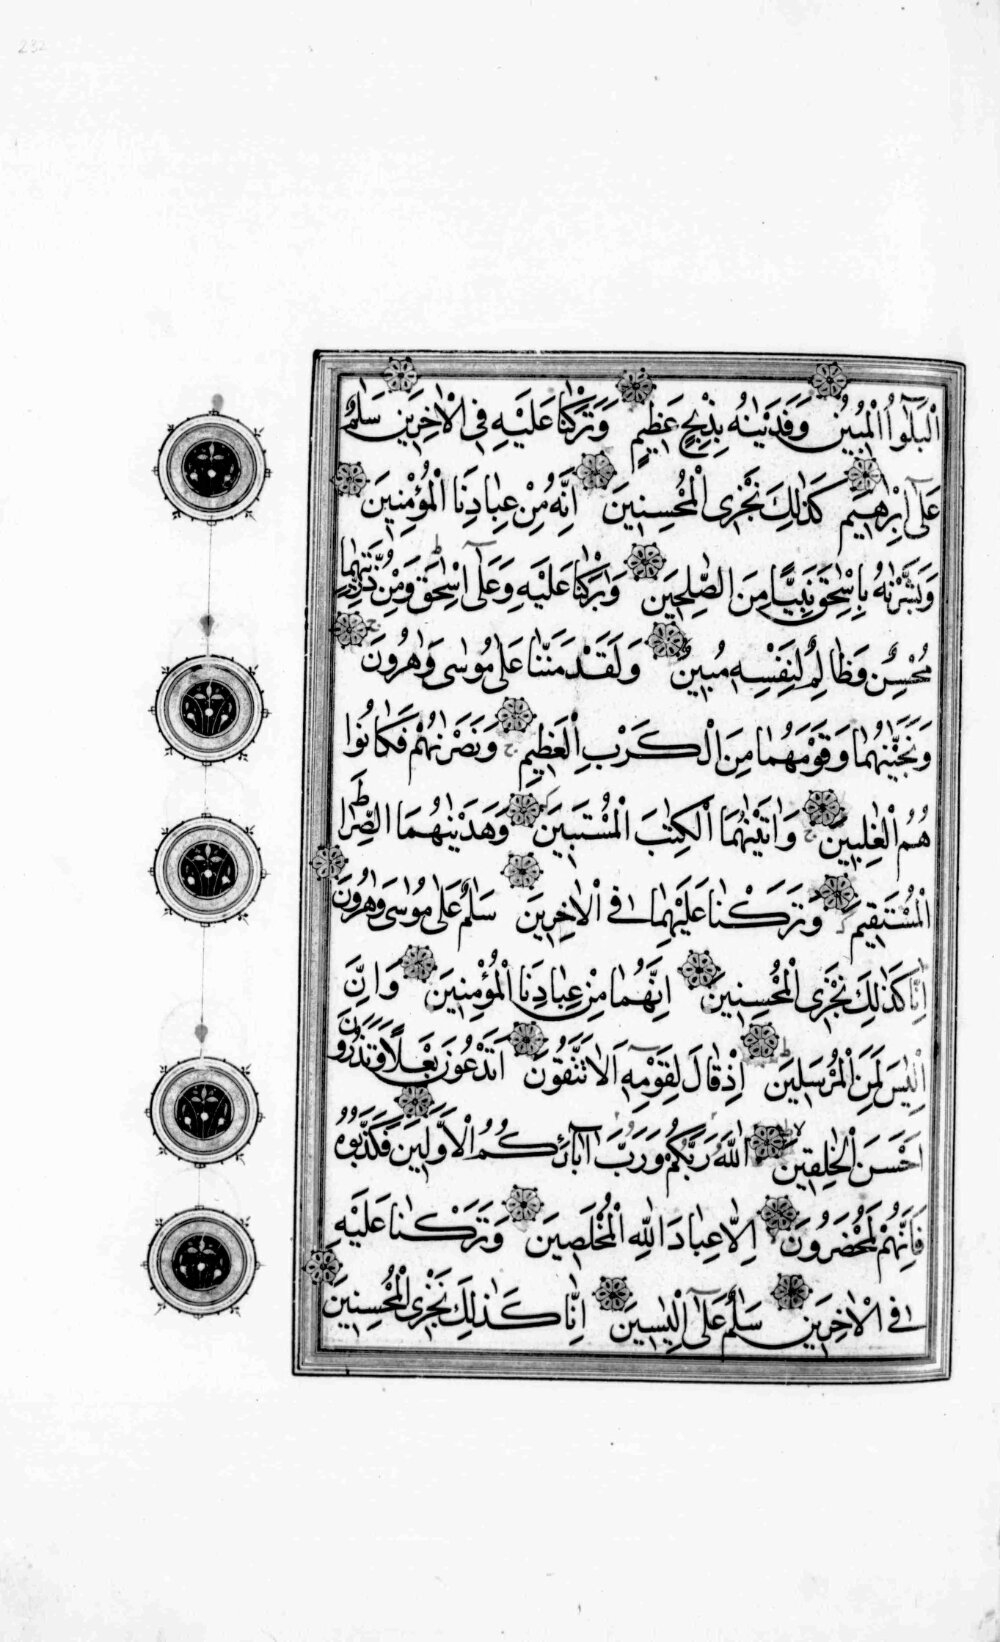 232
الْبَلٰۤؤُا الْمُبِينُ وَفَدَيْنٰهُ بِذِبْحٍ عَظِيمٍ وَتَرَكْنَا عَلَيْهِ فِي الْاٰخِرِينَ سَلٰمٌ
عَلٰٓى اِبْرٰهِيمَ كَذٰلِكَ نَجْزِى الْمُحْسِنِينَ اِنَّهُ مِنْ عِبَادِنَا الْمُؤْمِنِينَ
وَبَشَّرْنٰهُ بِاِسْحٰقَ نَبِيًّا مِنَ الصّٰلِحِينَ وَبٰرَكْنَا عَلَيْهِ وَعَلٰٓى اِسْحٰقَ وَمِنْ ذُرِّيَّتِهِمَا
مُحْسِنٌ وَظَالِمٌ لِنَفْسِهِ مُبِينٌ وَلَقَدْ مَنَنَّا عَلٰى مُوسٰى وَهٰرُونَ
وَنَجَّيْنٰهُمَا وَقَوْمَهُمَا مِنَ الْكَرْبِ الْعَظِيمِ وَنَصَرْنٰهُمْ فَكَانُوا
هُمُ الْغٰلِبِينَ وَاٰتَيْنٰهُمَا الْكِتٰبَ الْمُسْتَبِينَ وَهَدَيْنٰهُمَا الصِّرَاطَ
الْمُسْتَقِيمَ وَتَرَكْنَا عَلَيْهِمَا فِي الْاٰخِرِينَ سَلٰمٌ عَلٰى مُوسٰى وَهٰرُونَ
اِنَّا كَذٰلِكَ نَجْزِى الْمُحْسِنِينَ اِنَّهُمَا مِنْ عِبَادِنَا الْمُؤْمِنِينَ وَاِنَّ
اِلْيَاسَ لَمِنَ الْمُرْسَلِينَ اِذْ قَالَ لِقَوْمِهِ اَلَا تَتَّقُونَ اَتَدْعُونَ بَعْلًا وَتَذَرُونَ
اَحْسَنَ الْخٰلِقِينَ اَللّٰهَ رَبَّكُمْ وَرَبَّ اٰبَائِكُمُ الْاَوَّلِينَ فَكَذَّبُوهُ
فَاِنَّهُمْ لَمُحْضَرُونَ اِلَّا عِبَادَ اللّٰهِ الْمُخْلَصِينَ وَتَرَكْنَا عَلَيْهِ
فِي الْاٰخِرِينَ سَلٰمٌ عَلٰٓى اِلْيَاسِينَ اِنَّا كَذٰلِكَ نَجْزِى الْمُحْسِنِينَ